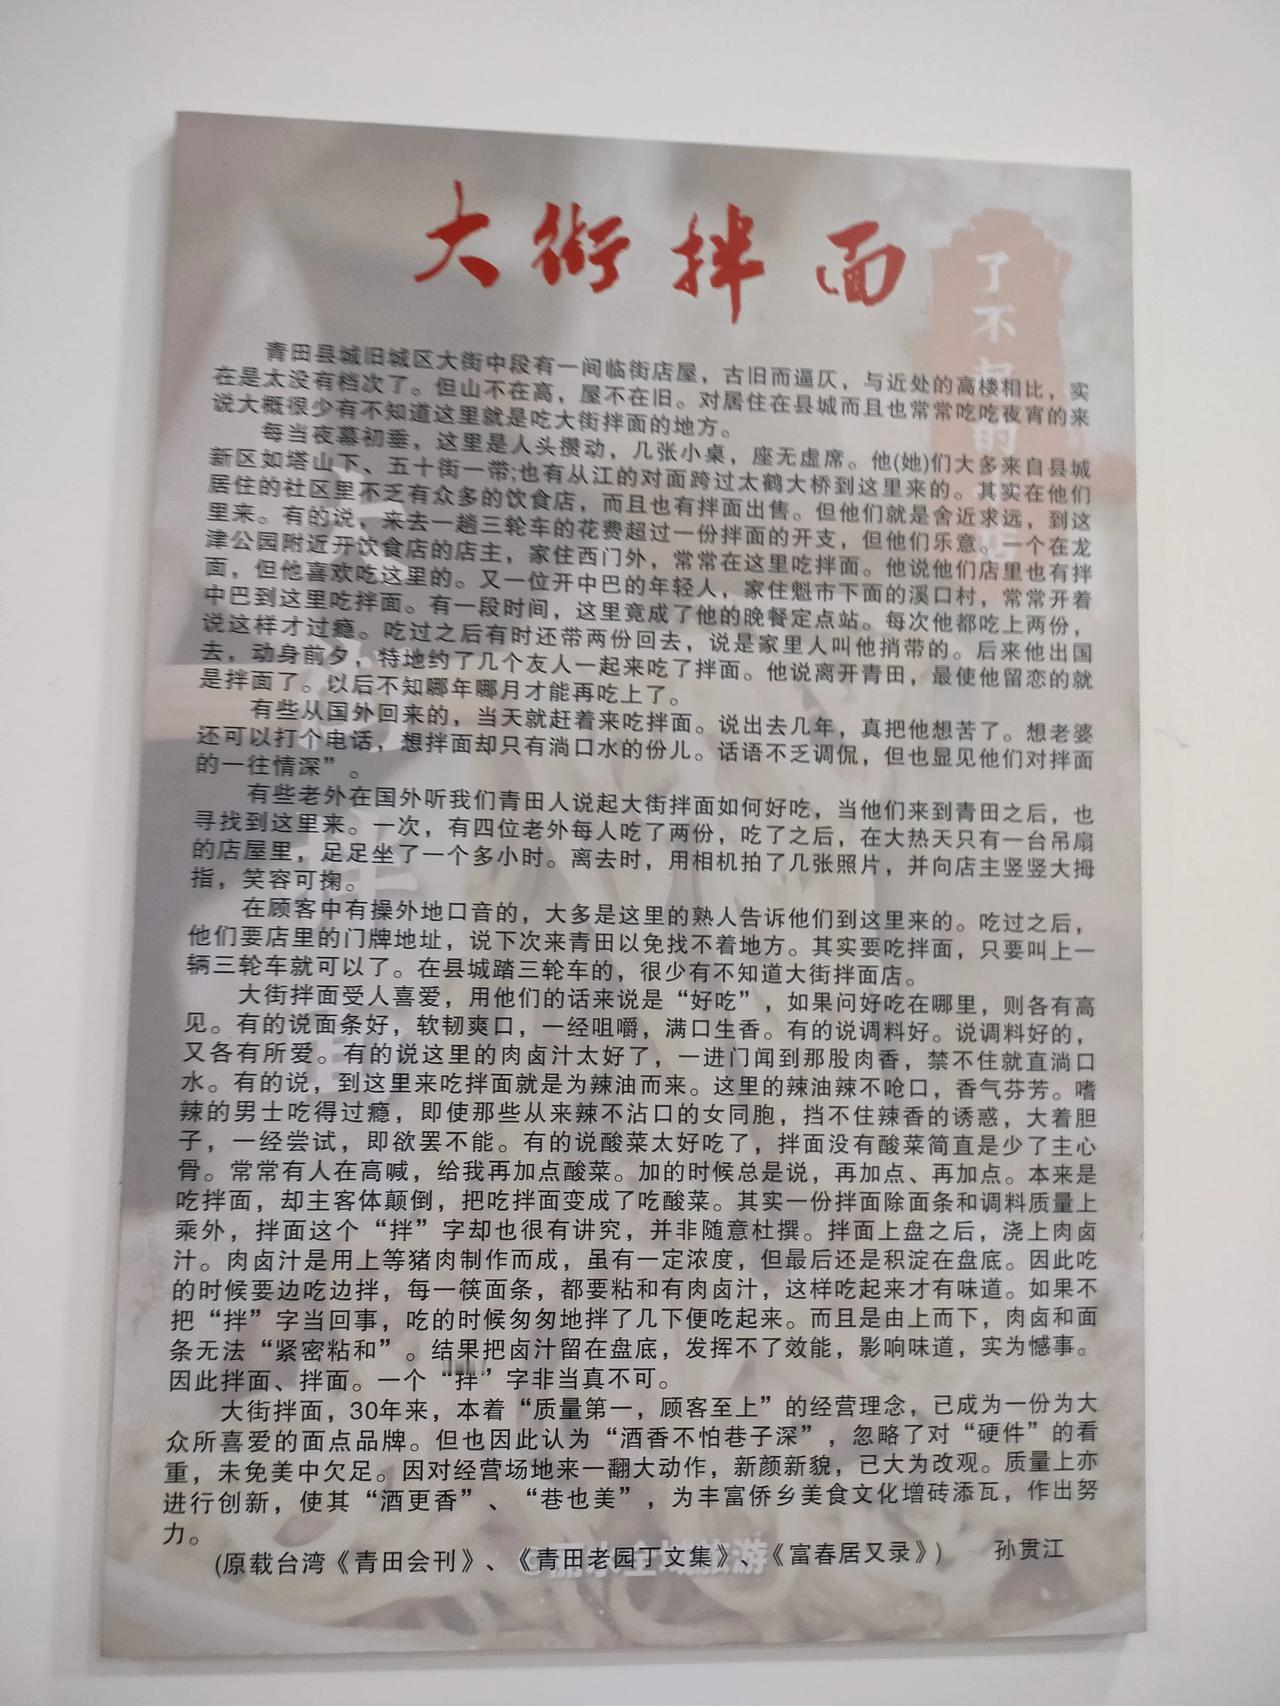 大街拌面
了不起的
青田县城旧城区大街中段有一间临街店屋，古旧而逼仄，与近处的高楼相比，实
在是太没有档次了。但山不在高，屋不在旧。对居住在县城而且也常常吃吃夜宵的来
说大概很少有不知道这里就是吃大街拌面的地方。
每当夜幕初垂，这里是人头攒动，几张小桌，座无虚席。他(她)们大多来自县城
新区如塔山下、五十街一带;也有从江的对面跨过太鹤大桥到这里来的。其实在他们
居住的社区里不乏有众多的饮食店，而且也有拌面出售。但他们就是舍近求远，到这
里来。有的说，来去一趟三轮车的花费超过一份拌面的开支，但他们乐意。一个在龙
津公园附近开饮食店的店主，家住西门外，常常在这里吃拌面。他说他们店里也有拌
面，但他喜欢吃这里的。又一位开中巴的年轻人，家住魁市下面的溪口村，常常开着
中巴到这里吃拌面。有一段时间，这里竟成了他的晚餐定点站。每次他都吃上两份，
说这样才过瘾。吃过之后有时还带两份回去，说是家里人叫他捎带的。后来他出国
去，动身前夕，特地约了几个友人一起来吃了拌面。他说离开青田，最使他留恋的就
是拌面了。以后不知哪年哪月才能再吃上了。
有些从国外回来的，当天就赶着来吃拌面。说出去几年，真把他想苦了。想老婆
还可以打个电话，想拌面却只有淌口水的份儿。话语不乏调侃，但也显见他们对拌面
的一往情深”。
有些老外在国外听我们青田人说起大街拌面如何好吃，当他们来到青田之后，也
寻找到这里来。一次，有四位老外每人吃了两份，吃了之后，在大热天只有一台吊扇
的店屋里，足足坐了一个多小时。离去时，用相机拍了几张照片，并向店主竖竖大拇
指，笑容可掬。
在顾客中有操外地口音的，大多是这里的熟人告诉他们到这里来的。吃过之后，
他们要店里的门牌地址，说下次来青田以免找不着地方。其实要吃拌面，只要叫上一
辆三轮车就可以了。在县城踏三轮车的，很少有不知道大街拌面店。
大街拌面受人喜爱，用他们的话来说是“好吃”，如果问好吃在哪里，则各有高
见。有的说面条好，软韧爽口，一经咀嚼，满口生香。有的说调料好。说调料好的，
又各有所爱。有的说这里的肉卤汁太好了，一进门闻到那股肉香，禁不住就直淌口
水。有的说，到这里来吃拌面就是为辣油而来。这里的辣油辣不呛口，香气芬芳。嗜
辣的男士吃得过瘾，即使那些从来辣不沾口的女同胞，挡不住辣香的诱惑，大着胆
子，一经尝试，即欲罢不能。有的说酸菜太好吃了，拌面没有酸菜简直是少了主心
骨。常常有人在高喊，给我再加点酸菜。加的时候总是说，再加点、再加点。本来是
吃拌面，却主客体颠倒，把吃拌面变成了吃酸菜。其实一份拌面除面条和调料质量上
乘外，拌面这个“拌”字却也很有讲究，并非随意杜撰。拌面上盘之后，浇上肉卤
汁。肉卤汁是用上等猪肉制作而成，虽有一定浓度，但最后还是积淀在盘底。因此吃
的时候要边吃边拌，每一筷面条，都要粘和有肉卤汁，这样吃起来才有味道。如果不
把“拌”字当回事，吃的时候匆匆地拌了几下便吃起来。而且是由上而下，肉卤和面
条无法“紧密粘和”。结果把卤汁留在盘底，发挥不了效能，影响味道，实为憾事。
因此拌面、拌面。一个“拌”字非当真不可。
大街拌面，30年来，本着“质量第一，顾客至上”的经营理念，已成为一份为大
众所喜爱的面点品牌。但也因此认为“酒香不怕巷子深”，忽略了对“硬件”的看
重，未免美中欠足。因对经营场地来一翻大动作，新颜新貌，已大为改观。质量上亦
进行创新，使其“酒更香”、“巷也美”，为丰富侨乡美食文化增砖添瓦，作出努
力。
(原载台湾《青田会刊》、《青田老园丁文集》、《富春居又录》) 孙贯江